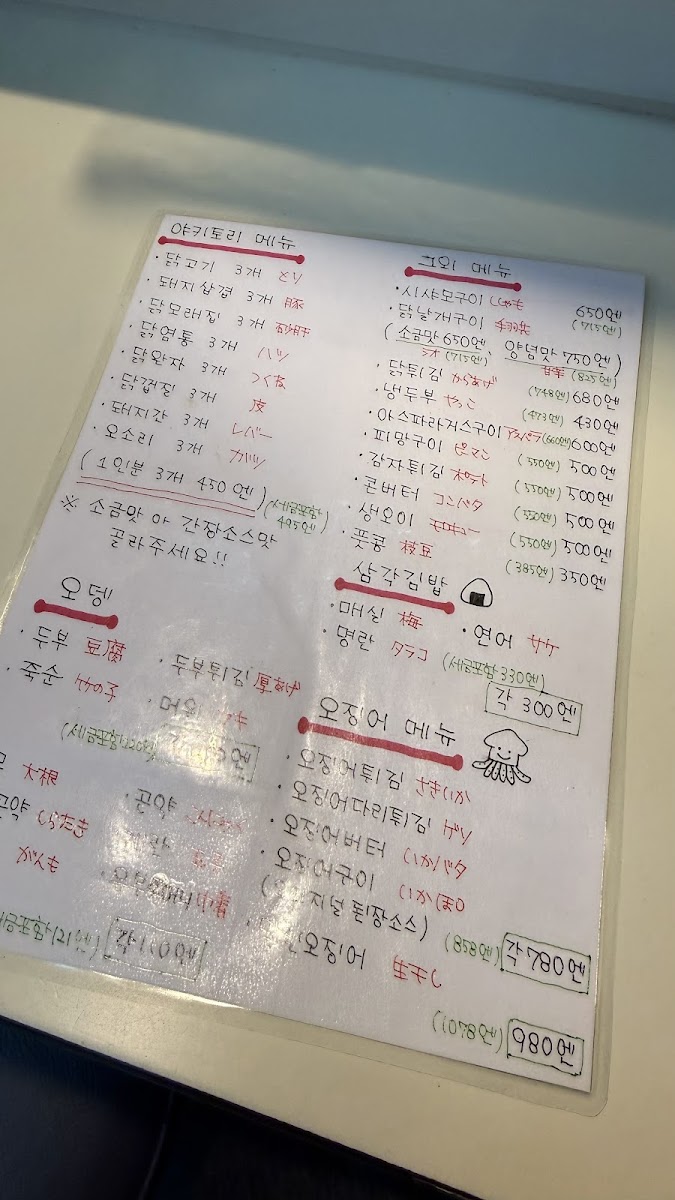 야키토리 메뉴
· 닭고기 3개 とり
· 돼지삼겹 3개 豚
· 닭모래집 3개 砂肝
· 닭염통 3개 ハツ
· 닭완자 3개 つくね
· 닭껍질 3개 皮
· 돼지간 3개 レバー
· 오소리 3개 ガツ
(1인분 3개 450엔) (세금포함 495엔)
※ 소금맛 아 간장소스맛
골라주세요!!
그외 메뉴
· 시샤모구이 ししゃも 650엔 (715엔)
· 닭날개구이 手羽先
(소금맛 650엔, 양념맛 750엔)
シオ (715엔) 甘辛 (825엔)
· 닭튀김 からあげ (748엔) 680엔
· 냉두부 やっこ (473엔) 430엔
· 아스파라거스구이 アスパラ (660엔) 600엔
· 피망구이 ピーマン (550엔) 500엔
· 감자튀김 ポテト (550엔) 500엔
· 콘버터 コーンバタ (550엔) 500엔
· 생오이 モロキュー (550엔) 500엔
· 풋콩 枝豆 (385엔) 350엔
삼각김밥
· 매실 梅 · 연어 サケ
· 명란 タラコ (세금포함 330엔)
각 300엔
오뎅
· 두부 豆腐 · 두부튀김 厚あげ
· 죽순 竹の子 · 머위
大根 · 곤약
곤약 しらたき
がんも
(121엔)
오징어 메뉴
· 오징어튀김 さきいか
· 오징어다리튀김 ゲソ
· 오징어버터 いかバタ
· 오징어구이 いか
된장소스) (858엔) 각 780엔
오징어 生干し
(1078엔) 980엔